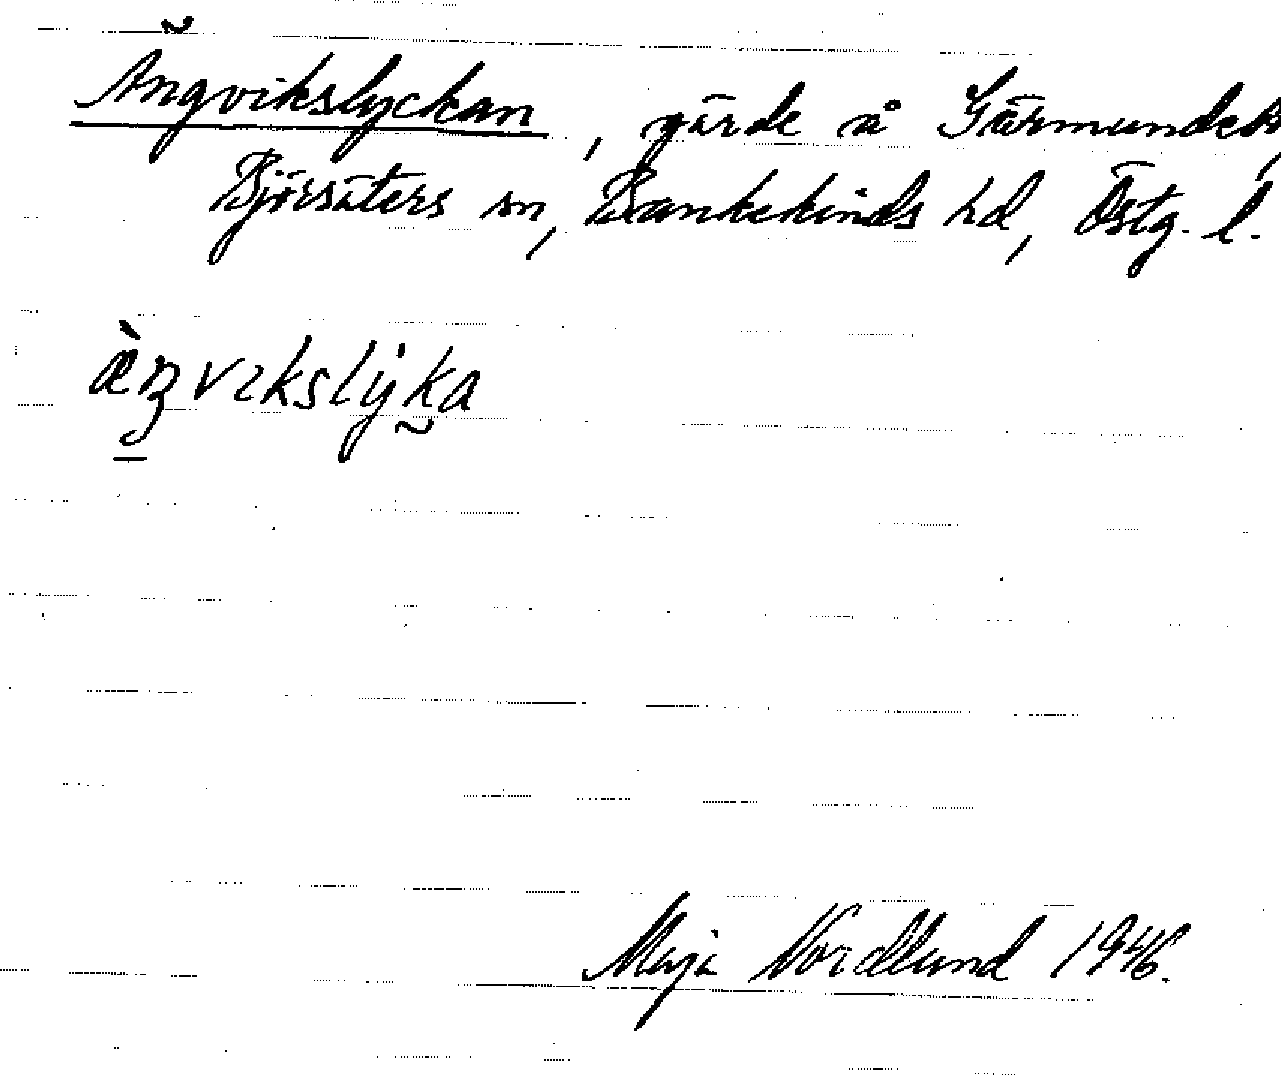 Ängvikslyckan, gärde å Gärmundeby,
Björsäters sn, Bankekinds hd, Östg. l.
ä̀ŋvɩkslẏka
Maja Nordlund 1946.